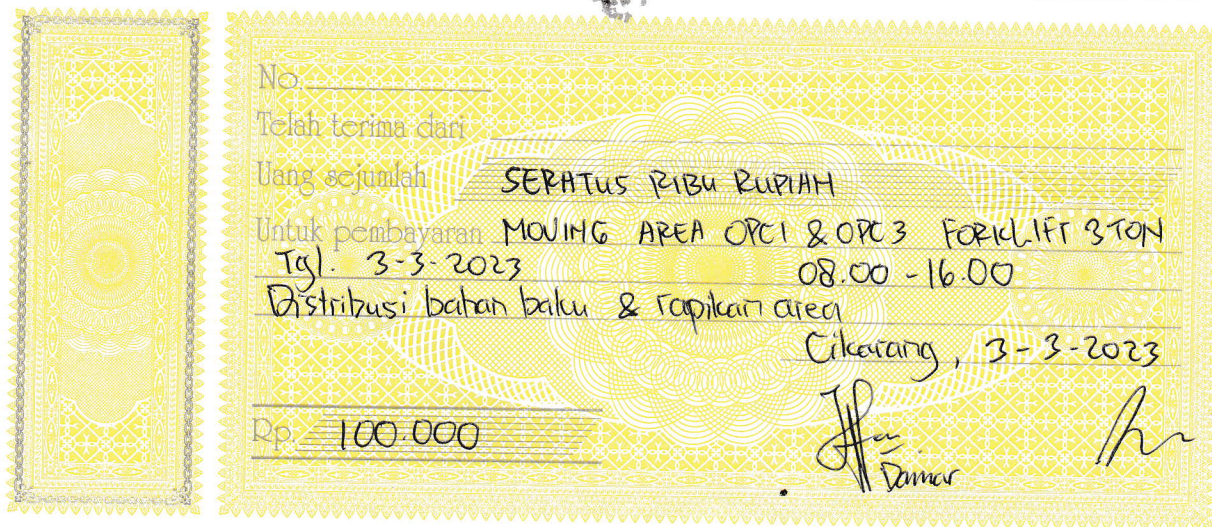 No.
Telah terima dari
Uang sejumlah SERATUS RIBU RUPIAH
Untuk pembayaran MOVING AREA OPC1 & OPC3 FORKLIFT 3 TON
Tgl. 3-3-2023 08.00 - 16.00
Distribusi bahan baku & rapikan area
Cikarang, 3-3-2023
Rp. 100.000
Damar